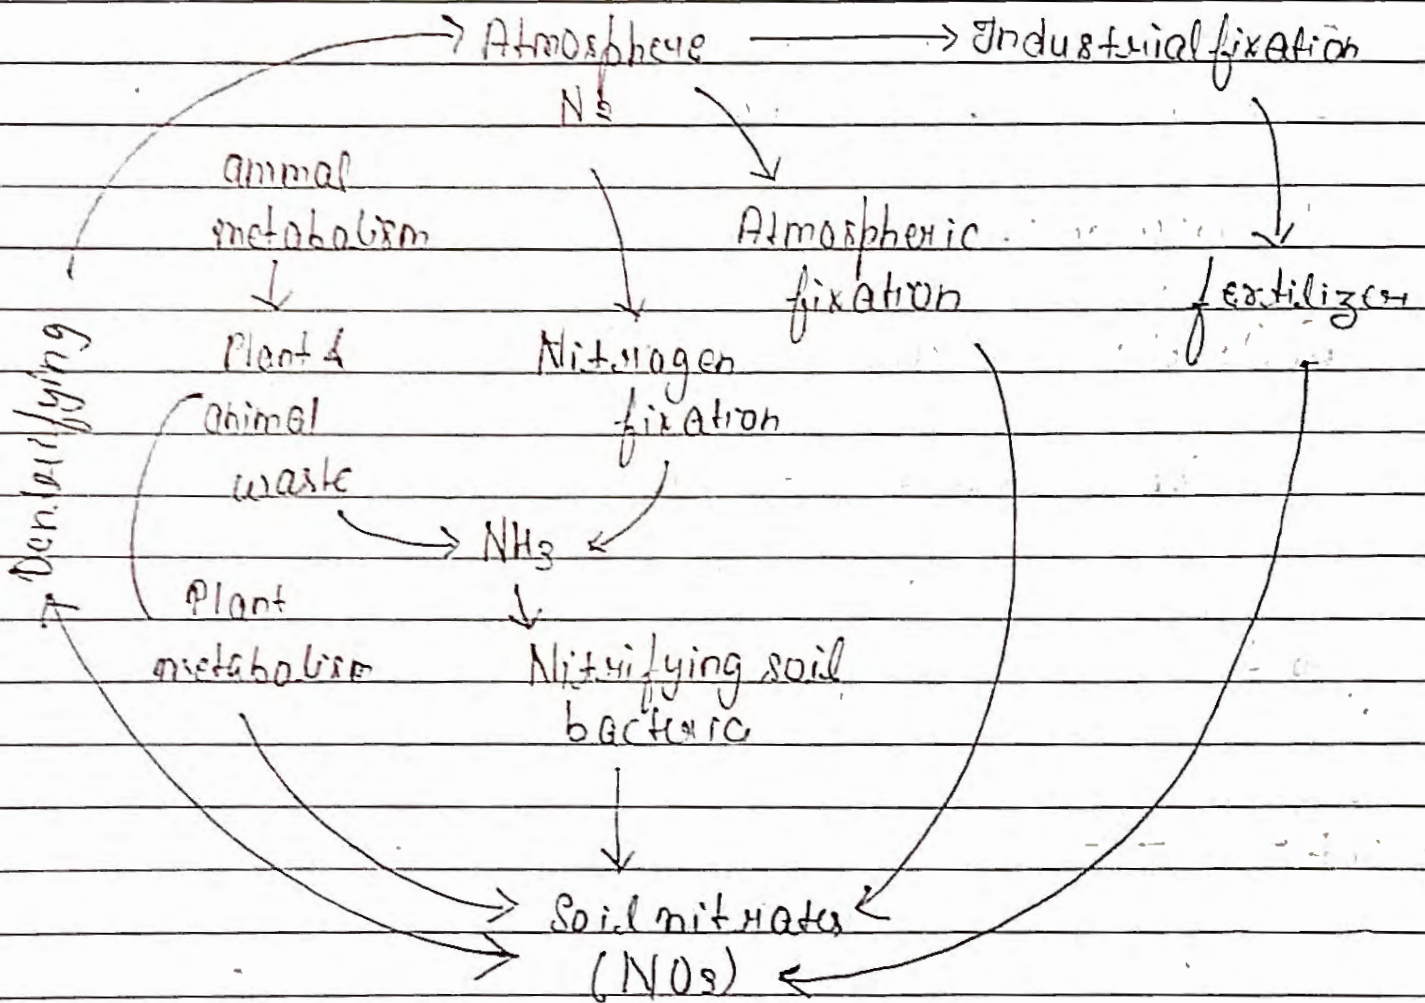 Atmosphere → Industrial fixation
N2
animal
metabolism
Atmospheric
fixation
fertilizer
Plant &
animal
waste
Nitrogen
fixation
NH3
Plant
metabolism
Nitrifying soil
bacteria
Soil nitrates
(NO3)